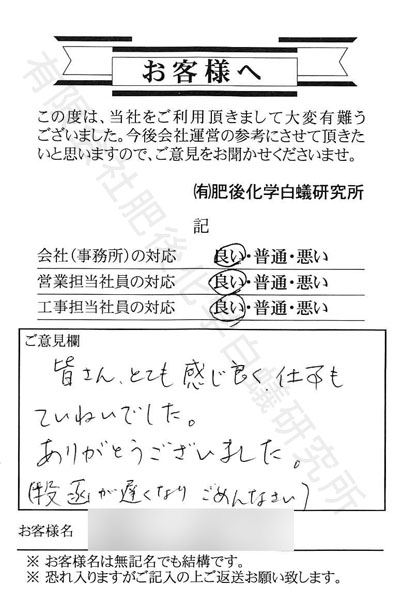 お客様へ
この度は、当社をご利用頂きまして大変有難う
ございました。今後会社運営の参考にさせて頂きた
いと思いますので、ご意見をお聞かせくださいませ。
㈲肥後化学白蟻研究所
記
会社(事務所)の対応 良い・普通・悪い
営業担当社員の対応 良い・普通・悪い
工事担当社員の対応 良い・普通・悪い
ご意見欄
皆さん、とても感じ良く、仕事も
ていねいでした。
ありがとうございました。
(投函が遅くなり ごめんなさい)
お客様名
※ お客様名は無記名でも結構です。
※ 恐れ入りますがご記入の上ご返送お願い致します。
有限会社肥後化学白蟻研究所